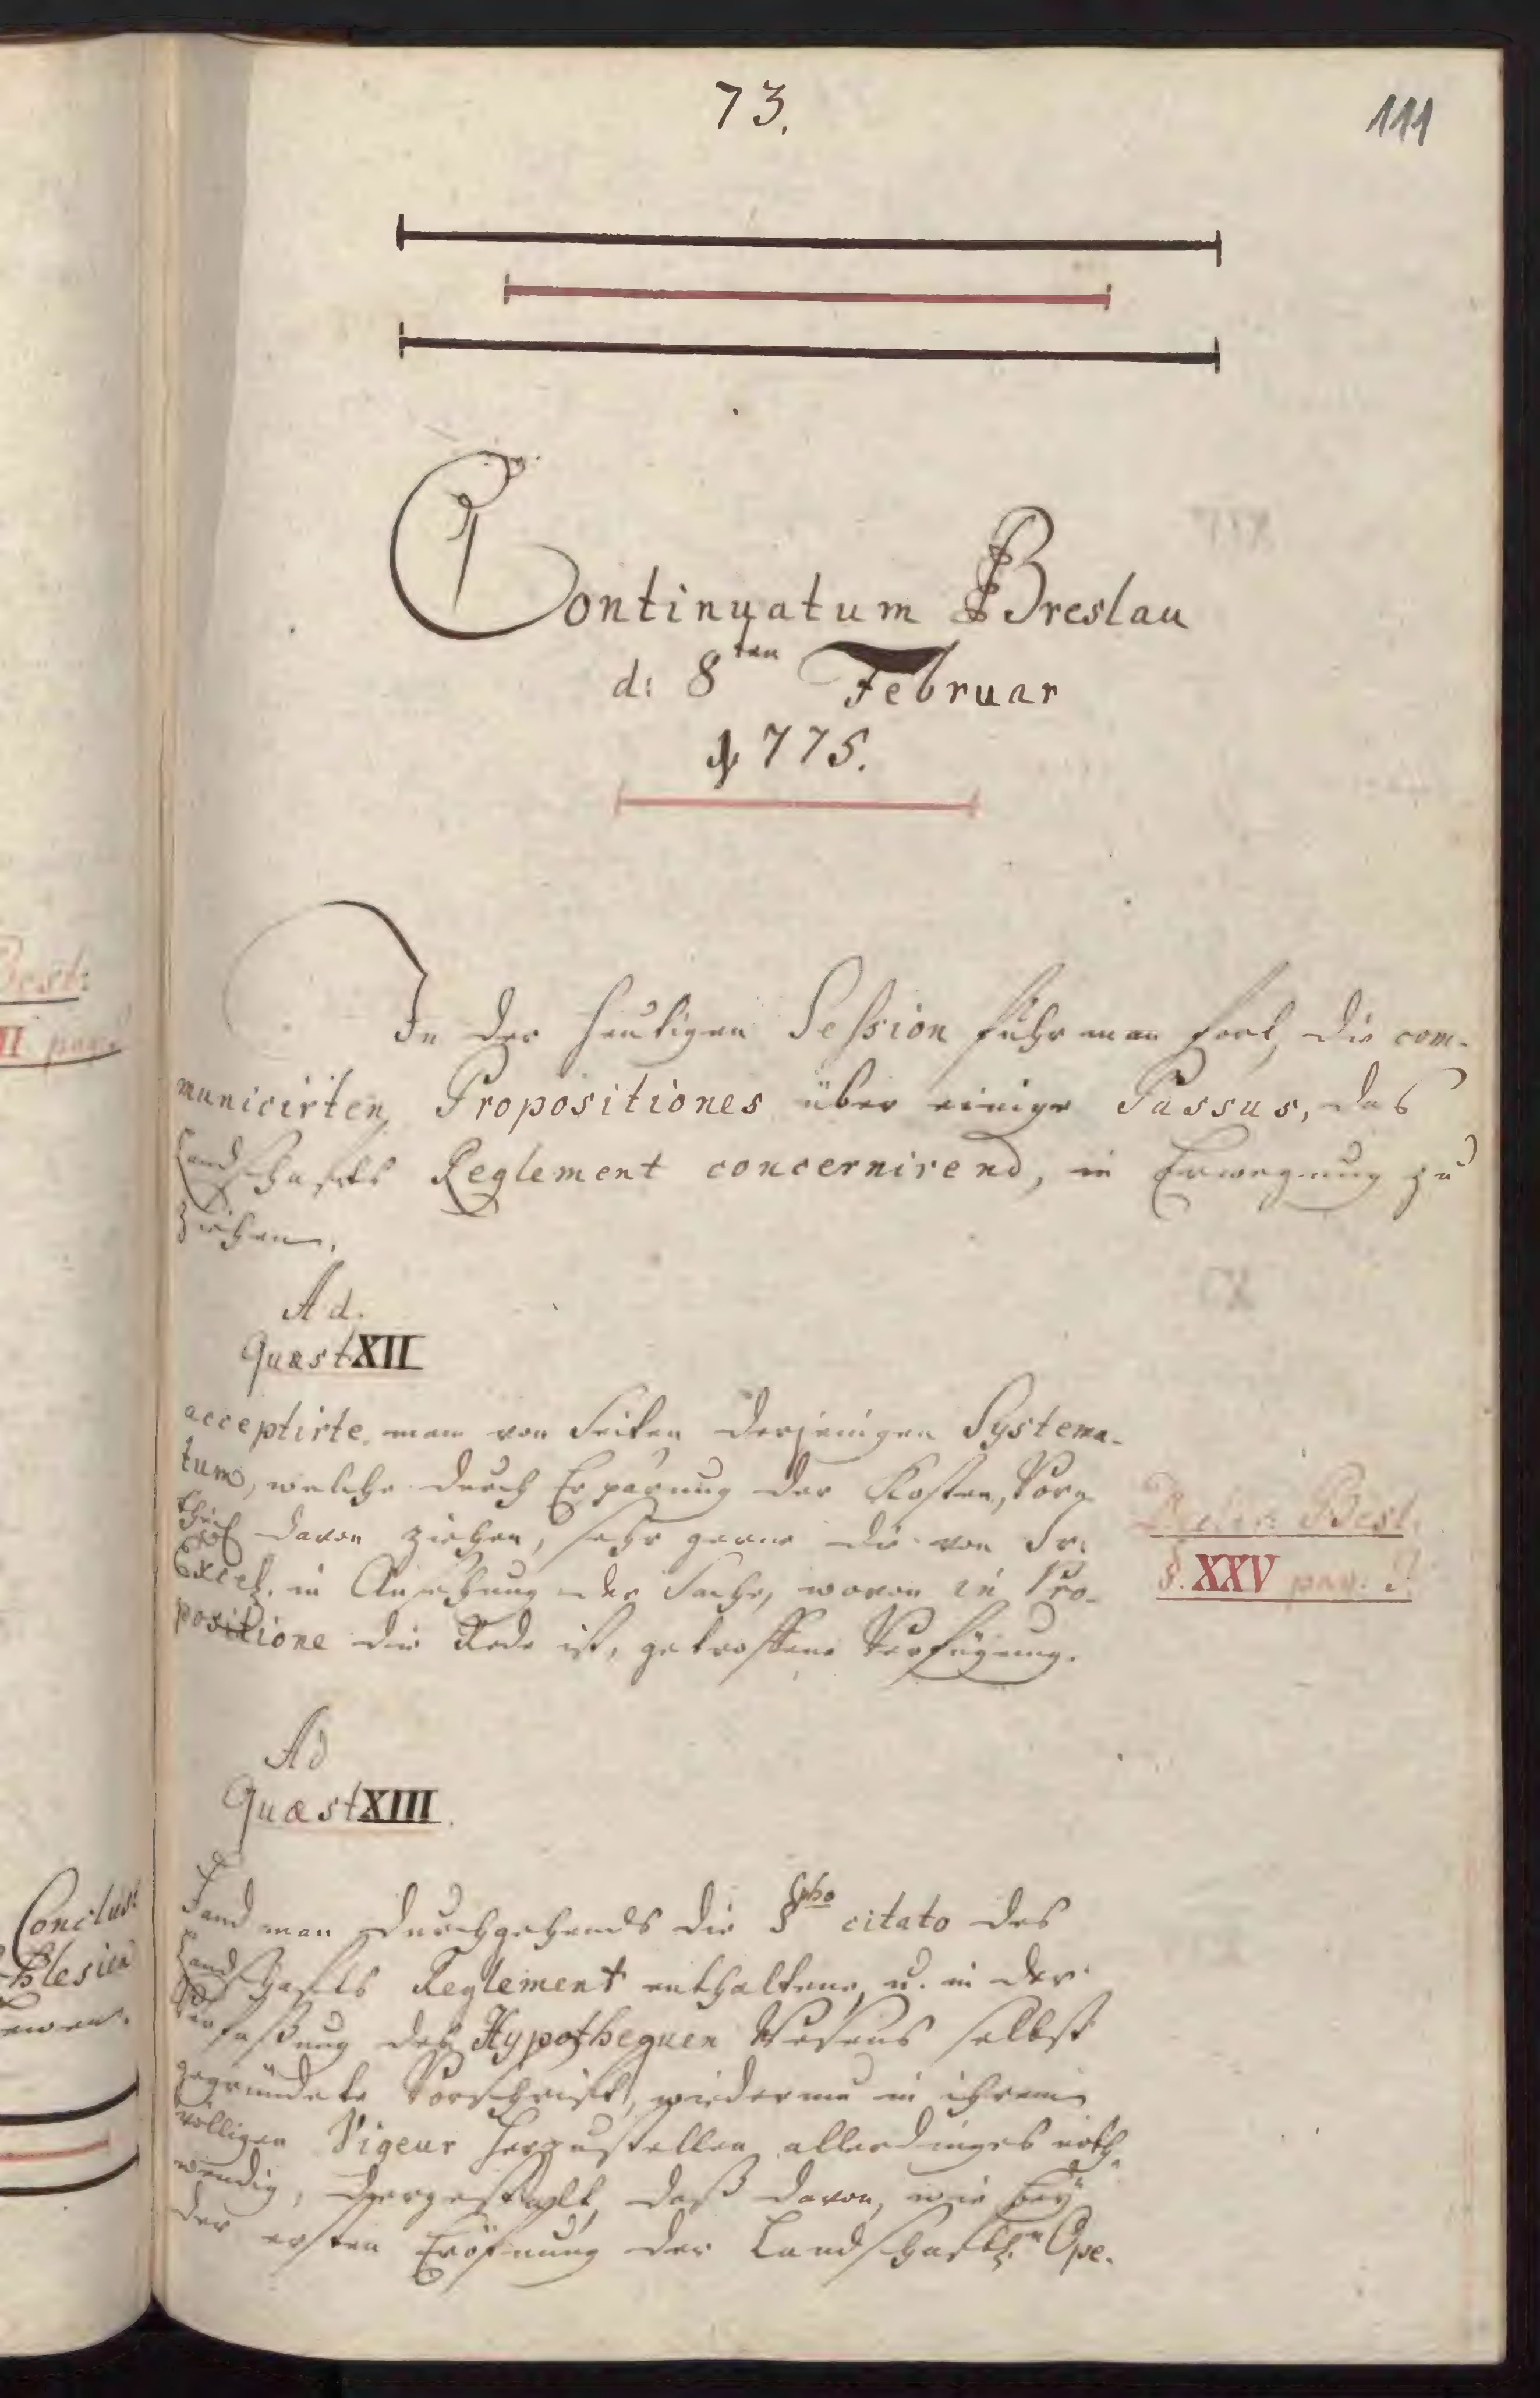 73.
111
Continuatum Breslau
d: 8ten Februar
1775.
In der heutigen Session fuhr man fort, die com-
municirten Propositiones über einige Passus, das
Landschafts Reglement concernirend, in Erwegung zu
ziehen.
Ad.
Quæst XII
acceptirte man von Seiten derjenigen Systema-
tum, welche durch Ersparung der Kosten, Vor-
theil davon ziehen, sehr gerne die von Sr.
Excel. in Ansehung der Sache, wovon in Pro-
positione die Rede ist, getroffene Verfügung.
Declar: Best.
§. XXV pag. 2.
Ad
Quæst XIII.
Fand man durchgehends die §pho citato des
Landschafts Reglement enthaltene, u. in der
Verfaßung des Hypothequen Wesens selbst
gegründete Vorschrift, wiederum in ihrem
völligen Vigeur herzustellen allerdinges noth-
wendig, dergestalt, daß davon, wie bey
der ersten Eröfnung der Landschaftl.n Ope-
Best:
II pag.
Conclus:
Schlesien